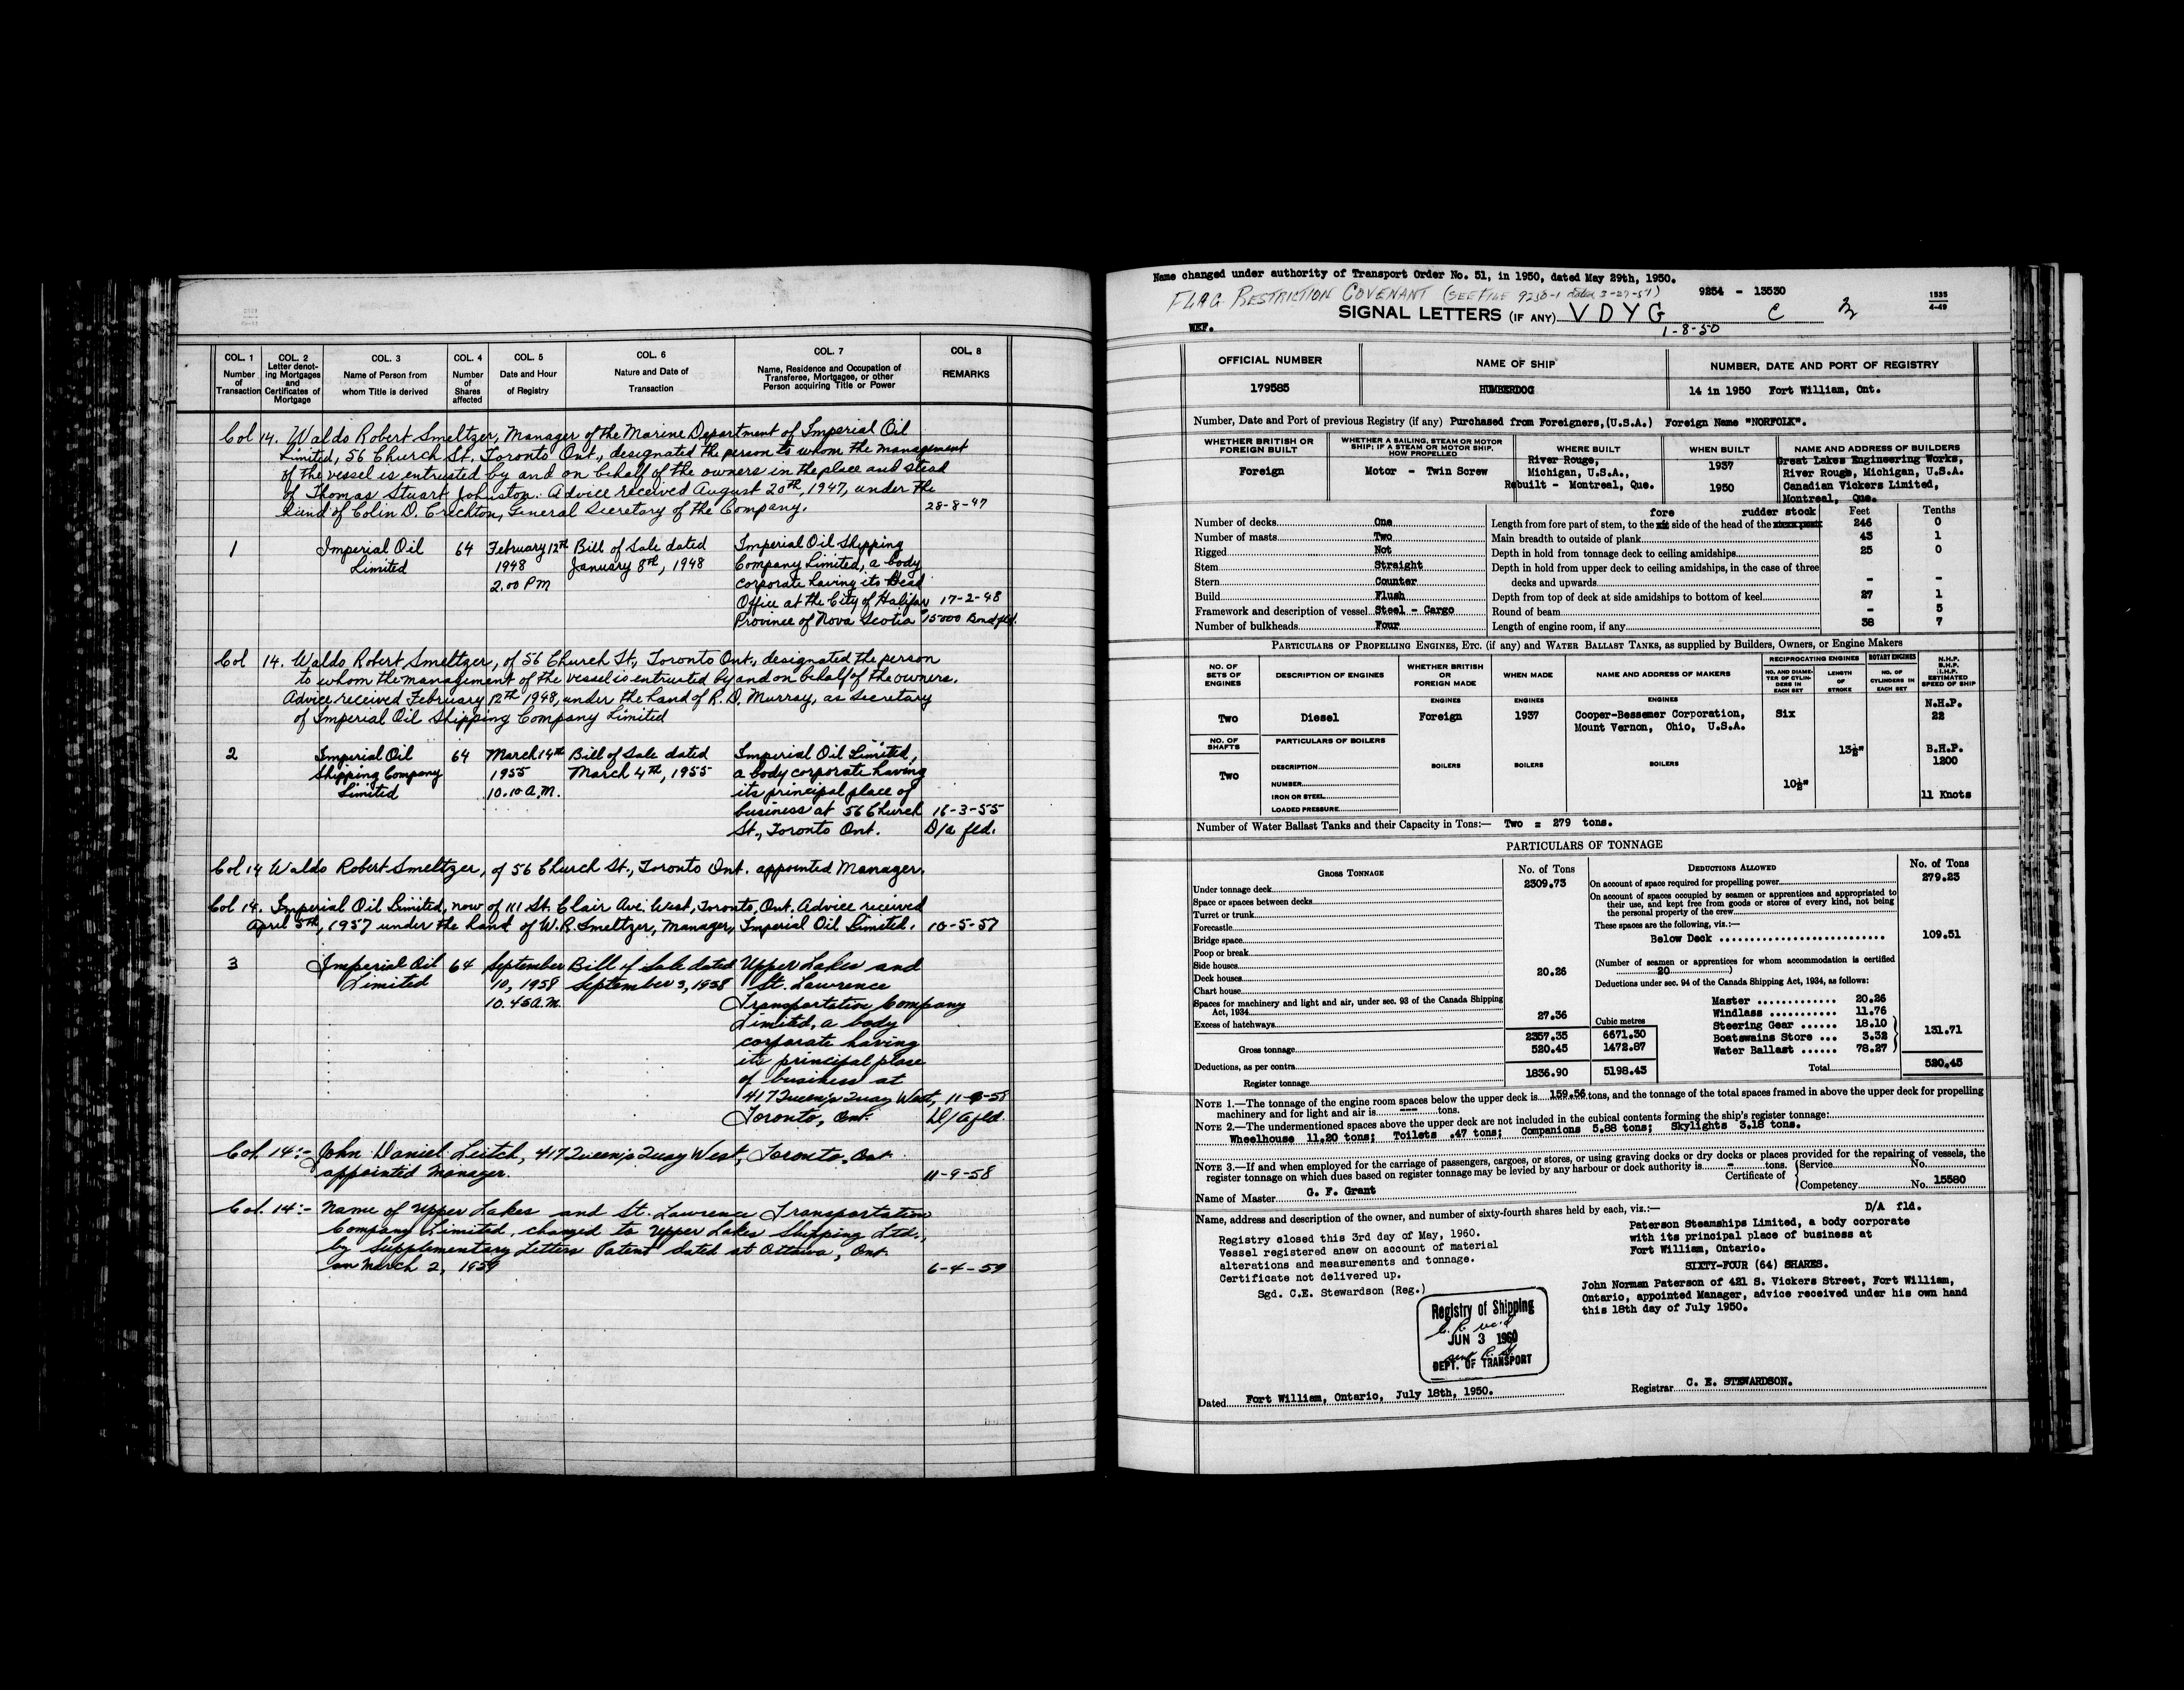 COL. 1 Number of Transaction
COL. 2 Letter denoting Mortgages and Certificates of Mortgage
COL. 3 Name of Person from whom Title is derived
COL. 4 Number of Shares affected
COL. 5 Date and Hour of Registry
COL. 6 Nature and Date of Transaction
COL. 7 Name, Residence and Occupation of Transferee, Mortgagee, or other Person acquiring Title or Power
COL. 8 REMARKS
Col 14. Waldo Robert Smeltzer, Manager of the Marine Department of Imperial Oil
Limited, 56 Church St. Toronto Ont., designated the person to whom the management
of the vessel is entrusted by and on behalf of the owners in the place and stead
of Thomas Stuart Johnston. Advice received August 20th, 1947, under the
hand of Colin D. Crichton, General Secretary of the Company. 28-8-47
1 Imperial Oil 64 February 12th Bill of Sale dated Imperial Oil Shipping
Limited 1948 January 8th, 1948 Company Limited, a body
2.00 PM corporate having its Head
Office at the City of Halifax 17-2-48
Province of Nova Scotia 15000 Bond fld.
Col 14. Waldo Robert Smeltzer, of 56 Church St., Toronto Ont., designated the person
to whom the management of the vessel is entrusted by and on behalf of the owners.
Advice received February 12th 1948, under the hand of R. D. Murray, as Secretary
of Imperial Oil Shipping Company Limited
2 Imperial Oil 64 March 14th Bill of Sale dated Imperial Oil Limited,
Shipping Company 1955 March 4th, 1955 a body corporate having
Limited 10.10 A.M. its principal place of
business at 56 Church 16-3-55
St., Toronto Ont. D/a fld.
Col 14 Waldo Robert Smeltzer, of 56 Church St., Toronto Ont. appointed Manager.
Col 14. Imperial Oil Limited, now of 111 St. Clair Ave. West, Toronto, Ont. Advice received
April 5th, 1957 under the hand of W. R. Smeltzer, Manager, Imperial Oil Limited. 10-5-57
3 Imperial Oil 64 September Bill of Sale dated Upper Lakes and
Limited 10, 1958 September 3, 1958 St. Lawrence
10.45 A.M. Transportation Company
Limited, a body
corporate having
its principal place
of business at
417 Queen's Quay West, 11-9-58
Toronto, Ont. D/A fld.
Col. 14:- John Daniel Leitch, 417 Queen's Quay West, Toronto, Ont
appointed manager. 11-9-58
Col. 14:- Name of Upper Lakes and St. Lawrence Transportation
Company Limited, changed to Upper Lakes Shipping Ltd.,
by Supplementary Letters Patent dated at Ottawa, Ont.
on March 2, 1959 6-4-59
Name changed under authority of Transport Order No. 51, in 1950, dated May 29th, 1950.
FLAG RESTRICTION COVENANT (SEE FILE 9250-1 dated 3-27-51) 9254 - 13530
1535
4-49
SIGNAL LETTERS (IF ANY) V D Y G C
WEF. 1-8-50
OFFICIAL NUMBER NAME OF SHIP NUMBER, DATE AND PORT OF REGISTRY
179585 HUMBERDOC 14 in 1950 Fort William, Ont.
Number, Date and Port of previous Registry (if any) Purchased from Foreigners, (U.S.A.) Foreign Name "NORFOLK".
WHETHER BRITISH OR FOREIGN BUILT
WHETHER A SAILING, STEAM OR MOTOR SHIP; IF A STEAM OR MOTOR SHIP, HOW PROPELLED
WHERE BUILT
WHEN BUILT
NAME AND ADDRESS OF BUILDERS
Foreign
Motor - Twin Screw
River Rouge,
Michigan, U.S.A.,
Rebuilt - Montreal, Que.
1937
1950
Great Lakes Engineering Works,
River Rough, Michigan, U.S.A.
Canadian Vickers Limited,
Montreal, Que.
Number of decks One
Number of masts Two
Rigged Not
Stem Straight
Stern Counter
Build Flush
Framework and description of vessel Steel - Cargo
Number of bulkheads Four
Feet Tenths
fore rudder stock
Length from fore part of stem, to the side of the head of the 246 0
Main breadth to outside of plank 43 1
Depth in hold from tonnage deck to ceiling amidships 25 0
Depth in hold from upper deck to ceiling amidships, in the case of three
decks and upwards - -
Depth from top of deck at side amidships to bottom of keel 27 1
Round of beam - 5
Length of engine room, if any 38 7
PARTICULARS OF PROPELLING ENGINES, ETC. (if any) and WATER BALLAST TANKS, as supplied by Builders, Owners, or Engine Makers
NO. OF SETS OF ENGINES
DESCRIPTION OF ENGINES
WHETHER BRITISH OR FOREIGN MADE
WHEN MADE
NAME AND ADDRESS OF MAKERS
RECIPROCATING ENGINES
NO. AND DIAMETER OF CYLINDERS IN EACH SET
LENGTH OF STROKE
ROTARY ENGINES
NO. OF CYLINDERS IN EACH SET
N.H.P.
B.H.P.
I.H.P.
ESTIMATED SPEED OF SHIP
ENGINES ENGINES ENGINES
Two Diesel Foreign 1937 Cooper-Bessemer Corporation, Six N.H.P.
Mount Vernon, Ohio, U.S.A. 22
NO. OF SHAFTS
PARTICULARS OF BOILERS
13½" B.H.P.
1200
Two
DESCRIPTION BOILERS BOILERS BOILERS
NUMBER 10½"
IRON OR STEEL 11 Knots
LOADED PRESSURE
Number of Water Ballast Tanks and their Capacity in Tons:— Two = 279 tons.
PARTICULARS OF TONNAGE
GROSS TONNAGE No. of Tons
Under tonnage deck 2309.73
Space or spaces between decks
Turret or trunk
Forecastle
Bridge space
Poop or break
Side houses
Deck houses 20.26
Chart house
Spaces for machinery and light and air, under sec. 93 of the Canada Shipping
Act, 1934 27.36
Excess of hatchways
Cubic metres
Gross tonnage 2357.35 6671.30
Deductions, as per contra 520.45 1472.87
Register tonnage 1836.90 5198.43
DEDUCTIONS ALLOWED No. of Tons
On account of space required for propelling power 279.23
On account of spaces occupied by seamen or apprentices and appropriated to
their use, and kept free from goods or stores of every kind, not being
the personal property of the crew
These spaces are the following, viz.:—
Below Deck 109.51
(Number of seamen or apprentices for whom accommodation is certified
20)
Deductions under sec. 94 of the Canada Shipping Act, 1934, as follows:
Master 20.26
Windlass 11.76
Steering Gear 18.10
Boatswains Store 3.32
Water Ballast 78.27
131.71
Total 520.45
NOTE 1.—The tonnage of the engine room spaces below the upper deck is 159.56 tons, and the tonnage of the total spaces framed in above the upper deck for propelling
machinery and for light and air is --- tons.
NOTE 2.—The undermentioned spaces above the upper deck are not included in the cubical contents forming the ship's register tonnage:
Wheelhouse 11.20 tons; Toilets .47 tons; Companions 5.88 tons; Skylights 3.18 tons.
NOTE 3.—If and when employed for the carriage of passengers, cargoes, or stores, or using graving docks or dry docks or places provided for the repairing of vessels, the
register tonnage on which dues based on register tonnage may be levied by any harbour or dock authority is - tons.
Certificate of
Service No.
Competency No. 15580
Name of Master G. F. Grant
Name, address and description of the owner, and number of sixty-fourth shares held by each, viz.:—
D/A fld.
Registry closed this 3rd day of May, 1960.
Vessel registered anew on account of material
alterations and measurements and tonnage.
Certificate not delivered up.
Sgd. C.E. Stewardson (Reg.)
Paterson Steamships Limited, a body corporate
with its principal place of business at
Fort William, Ontario.
SIXTY-FOUR (64) SHARES.
John Norman Paterson of 421 S. Vickers Street, Fort William,
Ontario, appointed Manager, advice received under his own hand
this 18th day of July 1950.
Registry of Shipping
JUN 3 1960
DEPT. OF TRANSPORT
Dated Fort William, Ontario, July 18th, 1950.
Registrar C. E. STEWARDSON.